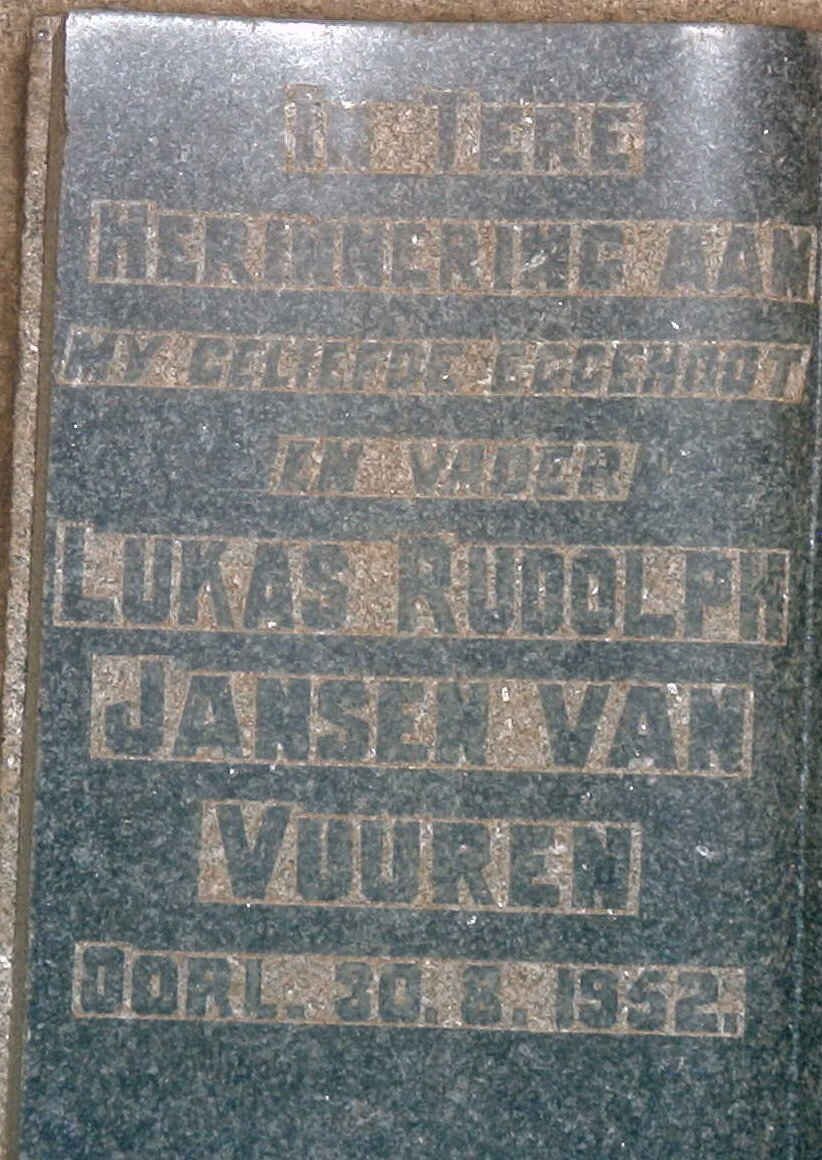 IN TERE
HERINNERING AAN
MY GELIEFDE EGGENOOT
EN VADER
LUKAS RUDOLPH
JANSEN VAN
VUUREN
OORL. 30. 8. 1952.